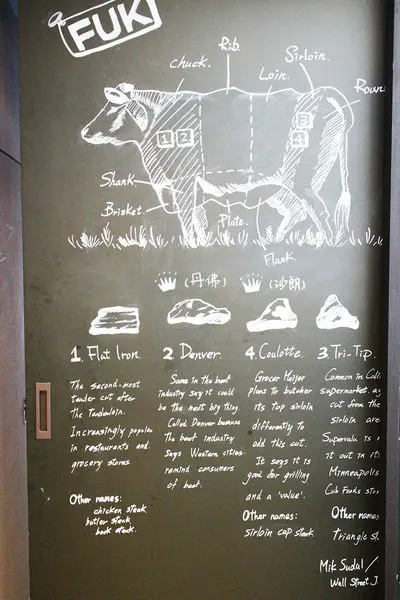 FUK
Rib.
chuck.
Sirloin.
Loin.
Roun
1 2
3
4
Shank
Brisket.
Plate.
Flank
(丹佛)
(沙朗)
1. Flat Iron.
The second-most
tender cut after
the Tenderloin.
Increasingly popular
in restaurants and
grocery stores
Other names:
chicken steak
butler steak
book steak.
2. Denver.
Some in the beef
industry say it could
be the next big thing.
Called Denver because
The beef industry
Says Western cities
remind consumers
of beef.
4. Coulotte.
Grocer Meijer
plans to butcher
its top sirloin
differently to
add this cut.
It says it is
good for grilling
and a 'value'.
Other names:
sirloin cap steak
3. Tri-Tip.
Common in Cali
supermarket
cut from the
sirloin are
Supervalu is
it out in its
Minneapolis
Cub Foods stor
Other names
Triangle st
Mik Sudal/
Wall Street J